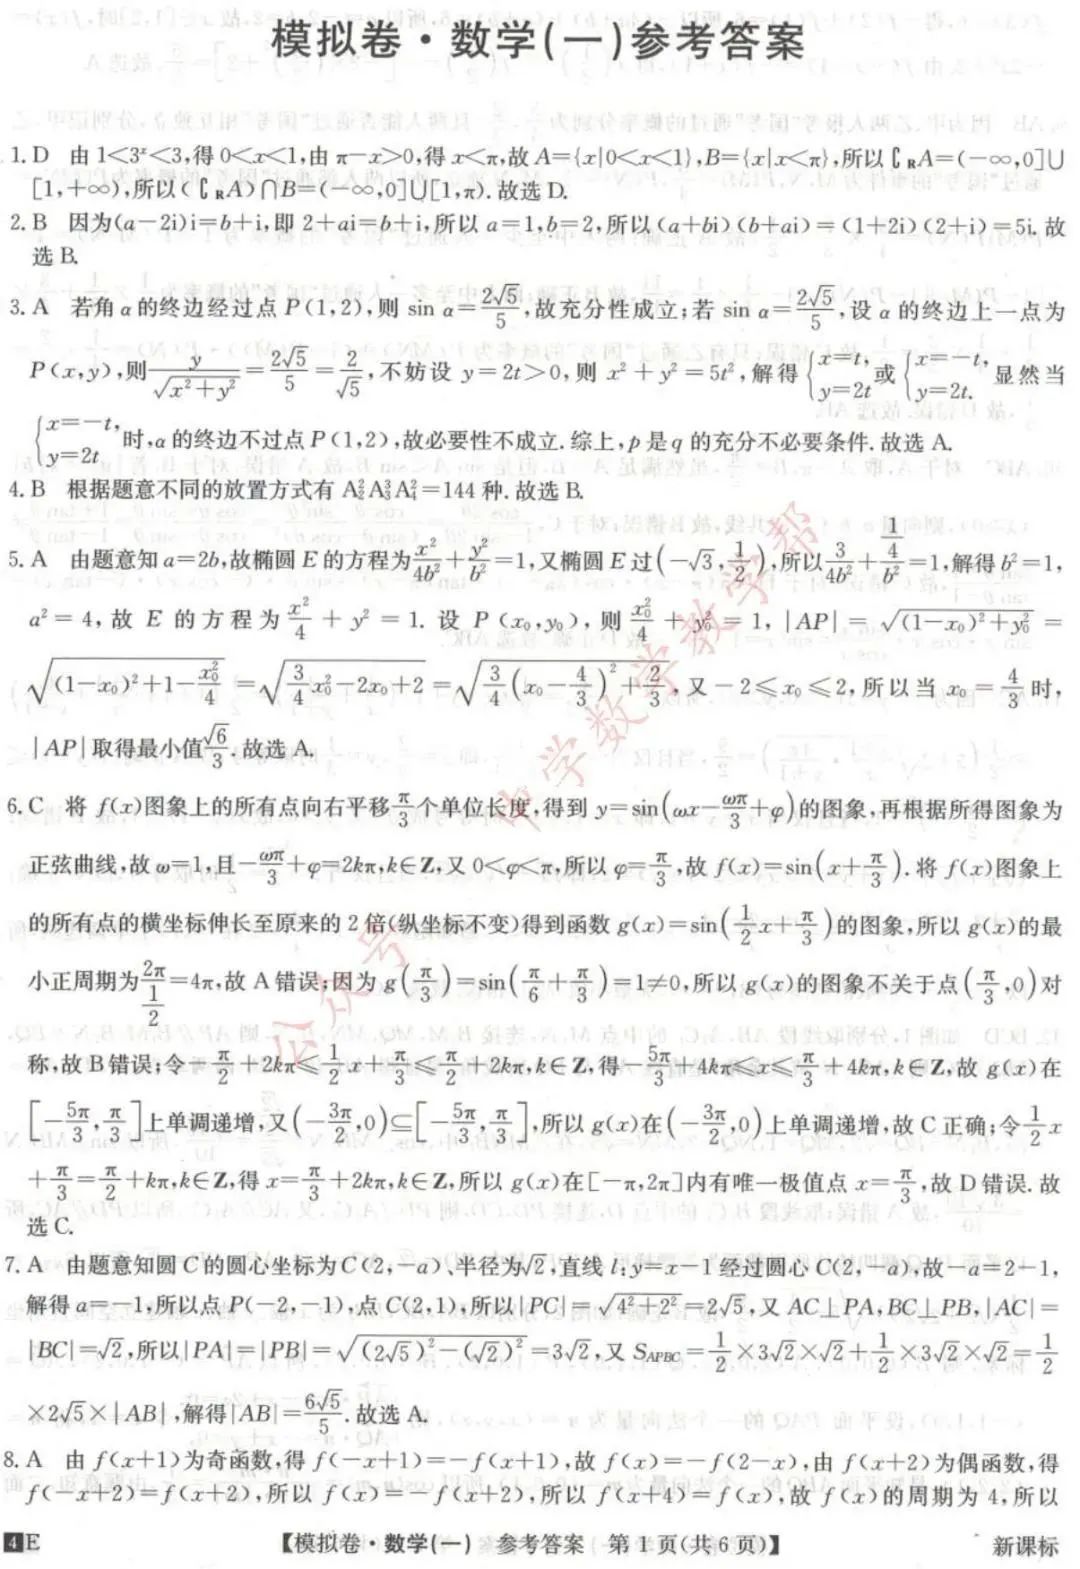 模拟卷·数学(一)参考答案
1. D 由 1<3ˣ<3,得 0<x<1,由 π-x>0,得 x<π,故 A={x|0<x<1},B={x|x<π},所以∁RA=(-∞,0]∪
[1,+∞),所以(∁RA)∩B=(-∞,0]∪[1,π). 故选 D.
2. B 因为(a-2i)i=b+i,即 2+ai=b+i,所以 a=1,b=2,所以(a+bi)(b+ai)=(1+2i)(2+i)=5i. 故
选 B.
3. A 若角 α 的终边经过点 P(1,2),则 sin α=2√5/5,故充分性成立;若 sin α=2√5/5,设 α 的终边上一点为
P(x,y),则 y/√(x²+y²)=2√5/5=2/√5,不妨设 y=2t>0,则 x²+y²=5t²,解得{x=t, y=2t 或{x=-t, y=2t. 显然当
{x=-t, y=2t 时,α 的终边不过点 P(1,2),故必要性不成立. 综上,p 是 q 的充分不必要条件. 故选 A.
4. B 根据题意不同的放置方式有 A₂²A₃³A₄²=144 种. 故选 B.
5. A 由题意知 a=2b,故椭圆 E 的方程为 x²/4b²+y²/b²=1,又椭圆 E 过(-√3,1/2),所以 3/4b²+(1/4)/b²=1,解得 b²=1,
a²=4,故 E 的方程为 x²/4+y²=1. 设 P(x₀,y₀),则 x₀²/4+y₀²=1,|AP|=√((1-x₀)²+y₀²)=
√((1-x₀)²+1-x₀²/4)=√(3/4x₀²-2x₀+2)=√(3/4(x₀-4/3)²+2/3),又-2≤x₀≤2,所以当 x₀=4/3时,
|AP|取得最小值√6/3. 故选 A.
6. C 将 f(x)图象上的所有点向右平移π/3个单位长度,得到 y=sin(ωx-ωπ/3+φ)的图象,再根据所得图象为
正弦曲线,故 ω=1,且-ωπ/3+φ=2kπ,k∈Z,又 0<φ<π,所以 φ=π/3,故 f(x)=sin(x+π/3). 将 f(x)图象上
的所有点的横坐标伸长至原来的 2 倍(纵坐标不变)得到函数 g(x)=sin(1/2x+π/3)的图象,所以 g(x)的最
小正周期为2π/(1/2)=4π,故 A 错误;因为 g(π/3)=sin(π/6+π/3)=1≠0,所以 g(x)的图象不关于点(π/3,0)对
称,故 B 错误;令-π/2+2kπ≤1/2x+π/3≤π/2+2kπ,k∈Z,得-5π/3+4kπ≤x≤π/3+4kπ,k∈Z,故 g(x)在
[-5π/3,π/3]上单调递增,又(-3π/2,0)⊆[-5π/3,π/3],所以 g(x)在(-3π/2,0)上单调递增,故 C 正确;令1/2x
+π/3=π/2+kπ,k∈Z,得 x=π/3+2kπ,k∈Z,所以 g(x)在[-π,2π]内有唯一极值点 x=π/3,故 D 错误. 故
选 C.
7. A 由题意知圆 C 的圆心坐标为 C(2,-a)、半径为√2,直线 l:y=x-1 经过圆心 C(2,-a),故-a=2-1,
解得 a=-1,所以点 P(-2,-1),点 C(2,1),所以|PC|=√(4²+2²)=2√5,又 AC⊥PA,BC⊥PB,|AC|=
|BC|=√2,所以|PA|=|PB|=√((2√5)²-(√2)²)=3√2,又 S_APBC=1/2×3√2×√2+1/2×3√2×√2=1/2
×2√5×|AB|,解得|AB|=6√5/5. 故选 A.
8. A 由 f(x+1)为奇函数,得 f(-x+1)=-f(x+1),故 f(x)=-f(2-x),由 f(x+2)为偶函数,得
f(-x+2)=f(x+2),所以 f(x)=-f(x+2),所以 f(x+4)=f(x),故 f(x)的周期为 4,所以
公众号 中学数学帮
4E 【模拟卷·数学(一) 参考答案 第 1 页(共 6 页)】 新课标